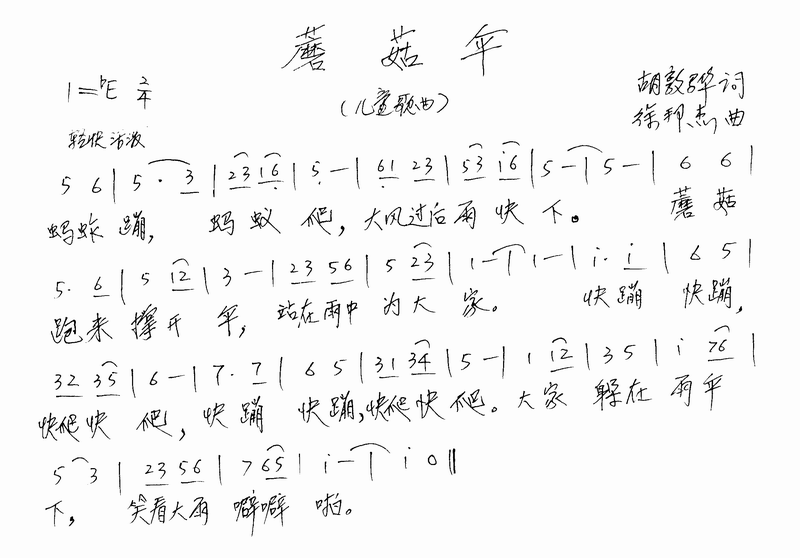 蘑菇伞
(儿童歌曲)
1=♭E 2/4
胡敦骅词
徐邦杰曲
轻快活泼
5 6 | 5 · 3 | 23 16 | 5 — | 61 23 | 53 i6 | 5 — | 5 — | 6 6 |
蚂蚱蹦, 蚂蚁爬, 大风过后雨快下。 蘑菇
5· 6 | 5 i2 | 3 — | 23 56 | 5 23 | 1 — | 1 — | i· i | 6 5 |
跑来撑开伞, 站在雨中为大家。 快蹦快蹦,
32 35 | 6 — | 7· 7 | 6 5 | 31 34 | 5 — | 1 12 | 3 5 | i 76 |
快爬快爬, 快蹦快蹦,快爬快爬。大家躲在雨伞
5 3 | 23 56 | 7 65 | i — | i 0 ‖
下, 笑看大雨噼噼啪。